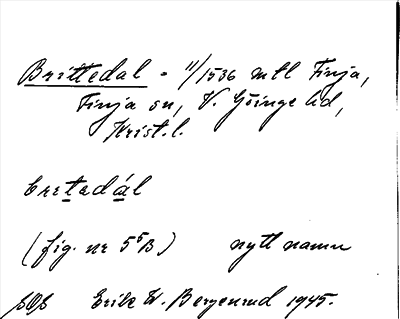 Brittedal - 11/1536 mtl Finja,
Finja sn, V. Göinge hd,
Krist. l.
(fig. nr 5⁵B) nytt namn
Erik W. Bergenrud 1945.